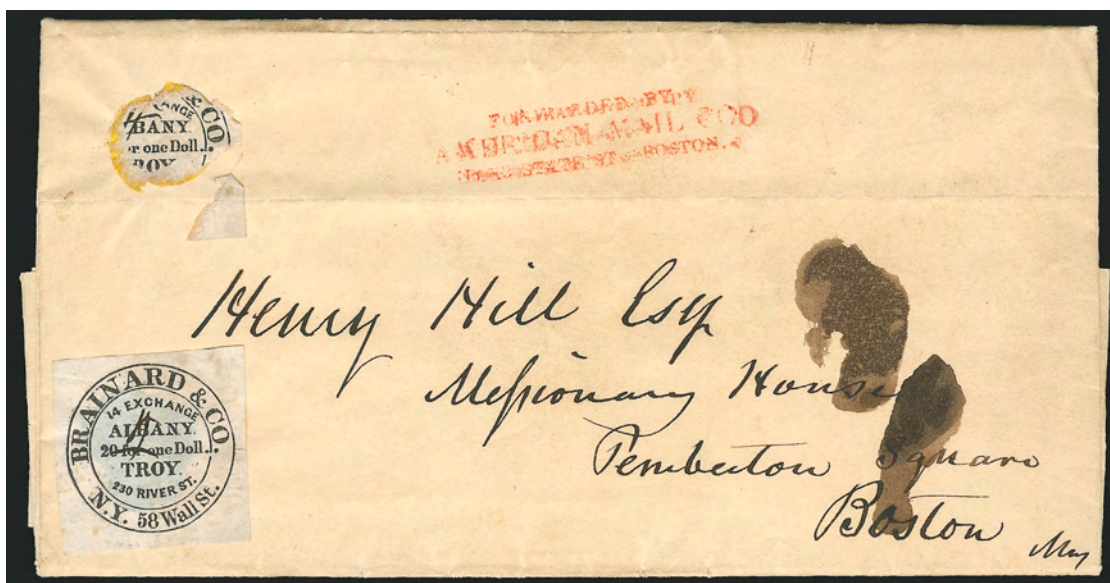 & CO.
BANY.
one Doll..
TROY
FORWARDED BY
AMERICAN MAIL CO
STATE ST. BOSTON.
Henry Hill Esq
Missionary House
Pemberton Square
Boston
May
BRAINARD & CO.
14 EXCHANGE
ALBANY.
20 for one Doll..
TROY.
230 RIVER ST.
N.Y. 58 Wall St.